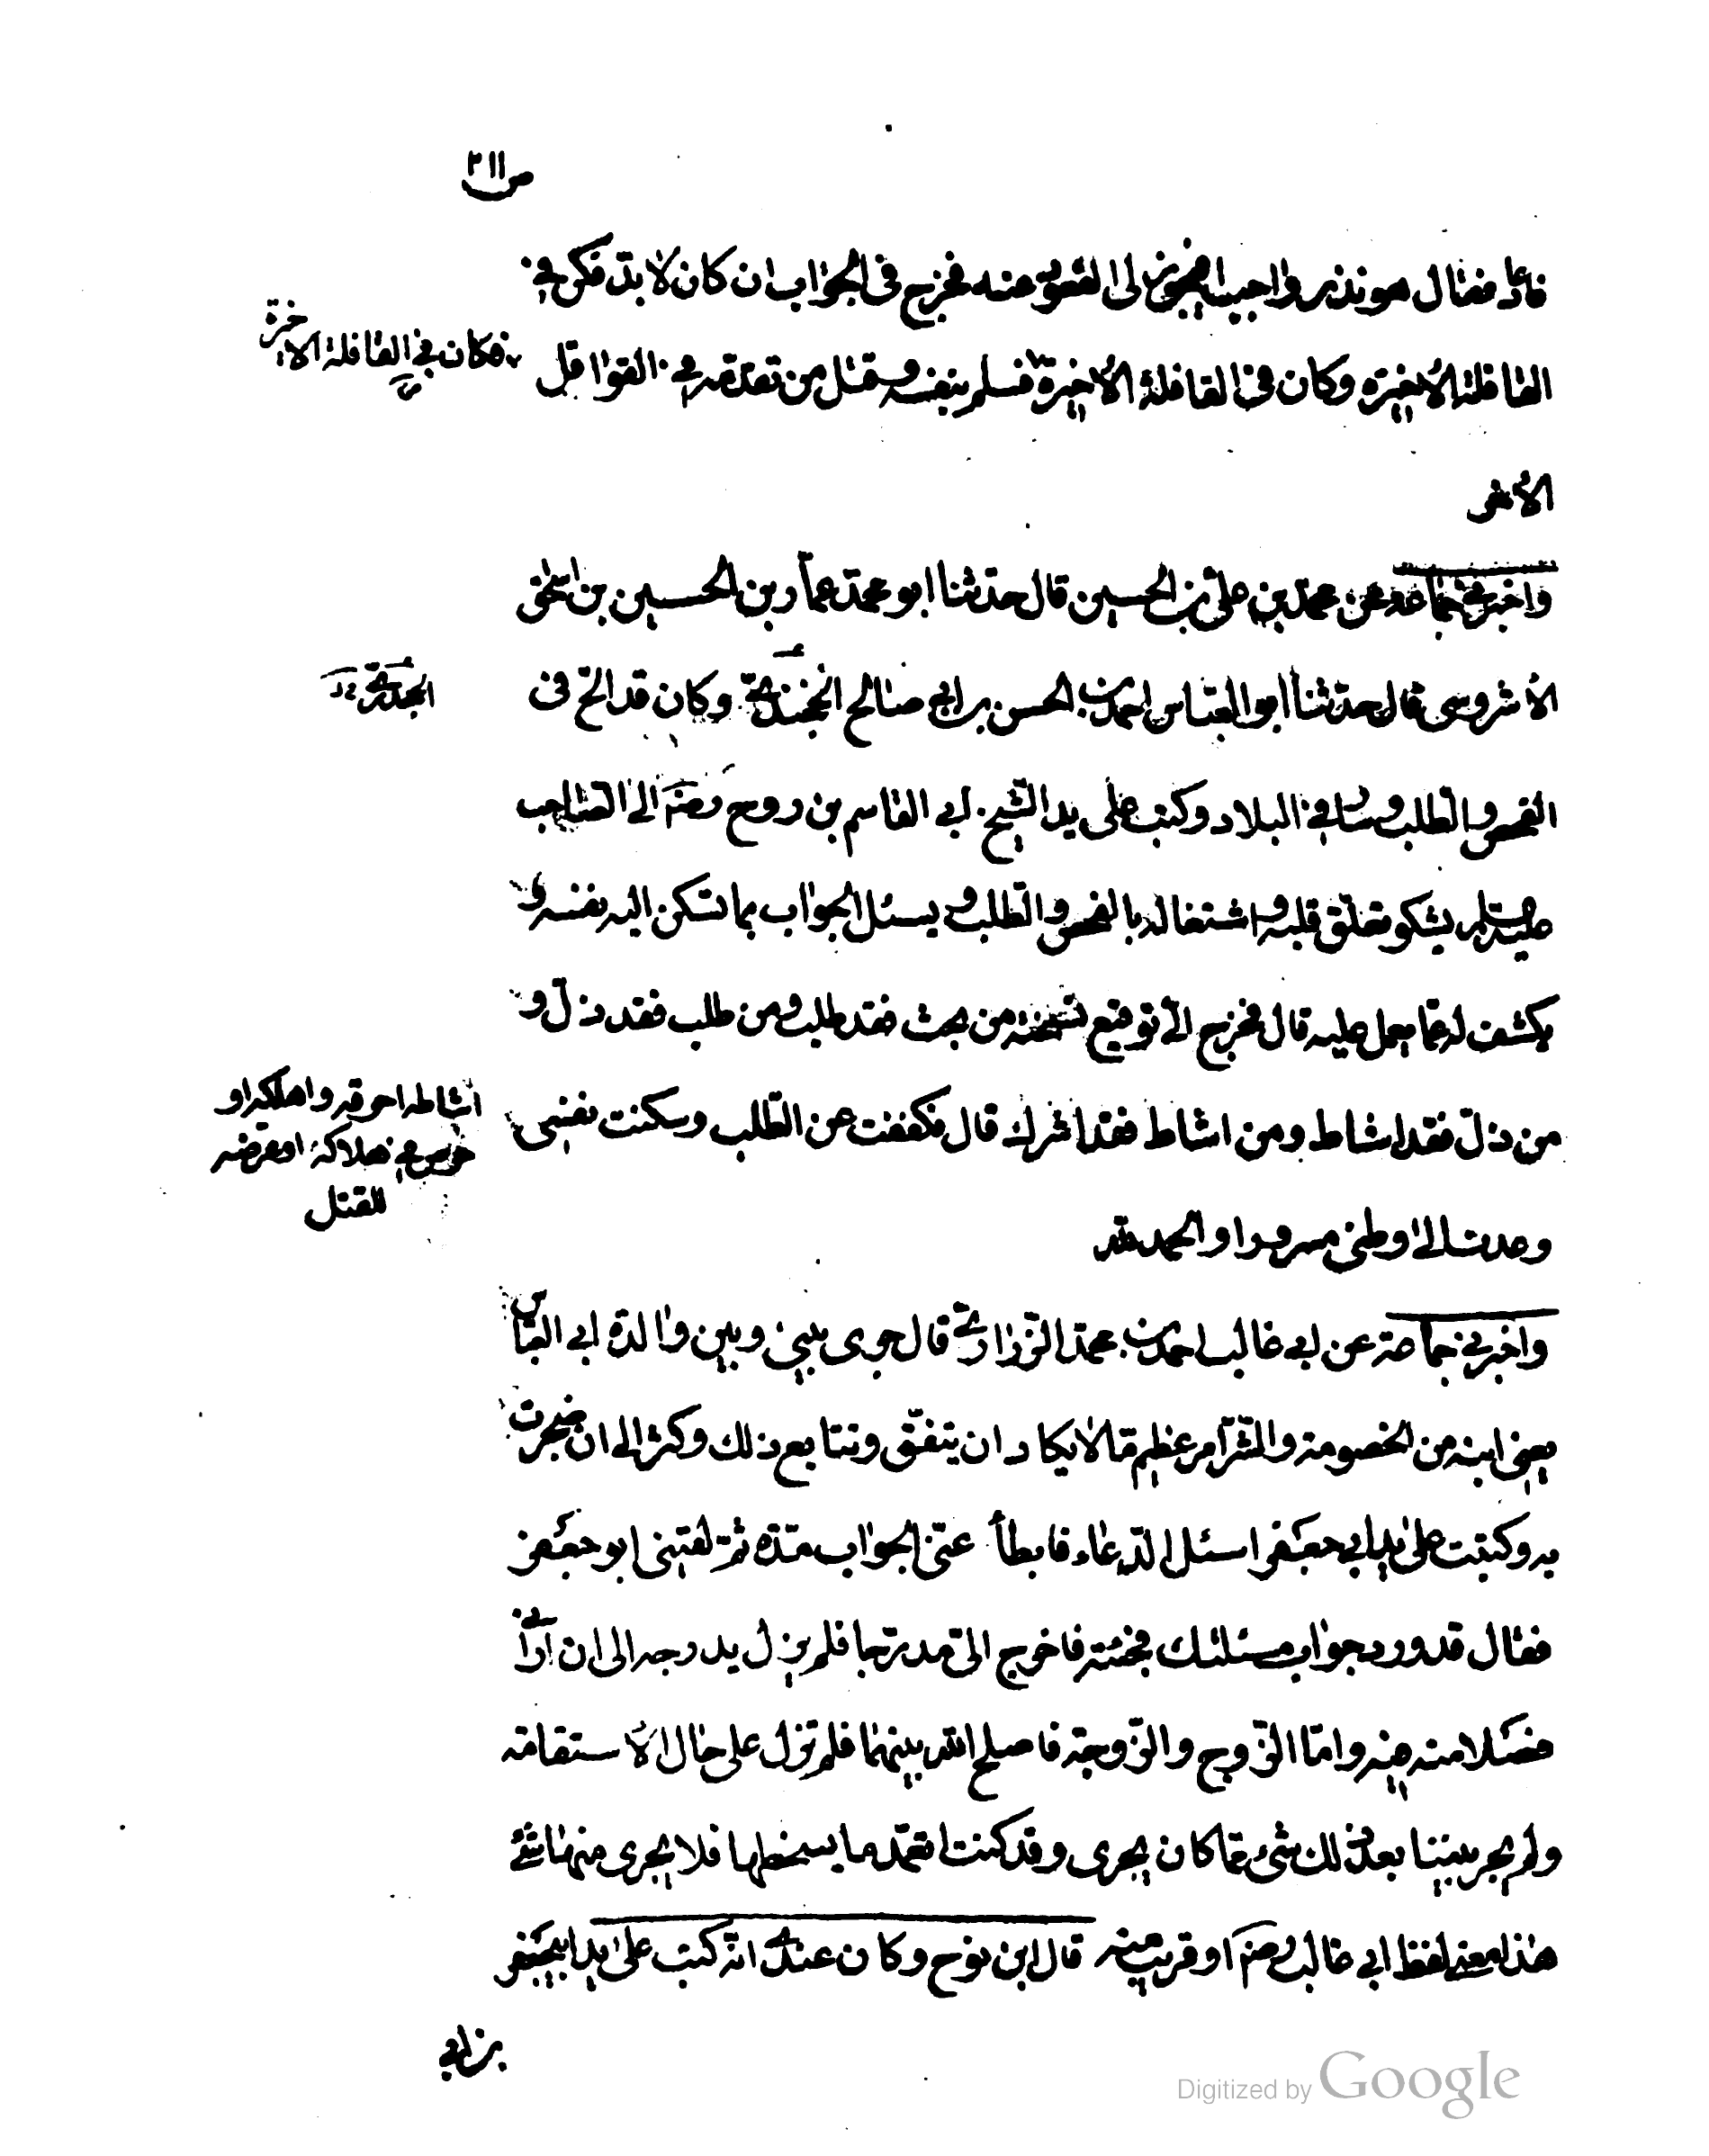 ص ٢١١
فأعاد فقال هو نذر واجب أيجوز لى القعود عنه فخرج فى الجواب ان كان لا بد فكن فى
القافلة الأخيرة وكان فى القافلة الأخيرة فسلم بنفسه وقتل من تقدمه فى القوافل
فكان فى القافلة الاخيرة
الأخر
واخبرنى جماعة عن محمد بن على بن الحسين قال حدثنا ابو محمد عمار بن الحسين بن اسحق
الأشروسى قال حدثنا ابو العباس احمد بن الحسن بن ابى صالح الخجندى وكان قد الح فى
الجحدرى
الفحص والطلب وسار فى البلاد وكتب على يد الشيخ ابى القاسم بن روح رضه الى الصاحب
عليه السلم يشكو تعلق قلبه واشتغاله بالفحص والطلب ويسئل الجواب بما تسكن اليه نفسه و
يكشف له عما يعمل عليه قال فخرج الى توقيع نسخته من بحث فقد طلب ومن طلب فقد ذل و
من ذل فقد اشاط ومن اشاط فقد اشرك قال فكففت عن الطلب وسكنت نفسى
اشاطه احرقه واهلكه او
عرض فى هلاكه او عرضه
للقتل
وعدت الى وطنى مسرورا والحمد لله
واخبرنى جماعة عن ابى غالب احمد بن محمد الزرارى قال جرى بينى وبين والدة ابى العباس
يعنى ابنه من الخصومة والشر امر عظيم ما لا يكاد ان يتفق وتتابع ذلك وكثر الى ان ضجرت
به وكتبت على يد ابى جعفر اسئل الدعاء فابطأ عنى الجواب مدة ثم لقينى ابو جعفر
فقال قد ورد جواب مسئلتك فجئته فاخرج الى مدرجا فلم يزل يدرجه الى ان أرانى
فصلا منه فيه واما الزوج والزوجة فاصلح الله بينهما فلم تزل على حال الأستقامة
ولم يجر بيننا بعد ذلك شئ مما كان يجرى وقد كنت اتعمد ما يسخطها فلا يجرى منها شئ
هذا معنى لفظ ابى غالب رضه او قريب منه قال ابن نوح وكان عندى انه كتب على يد ابى جعفر
بن ابى
Digitized by Google